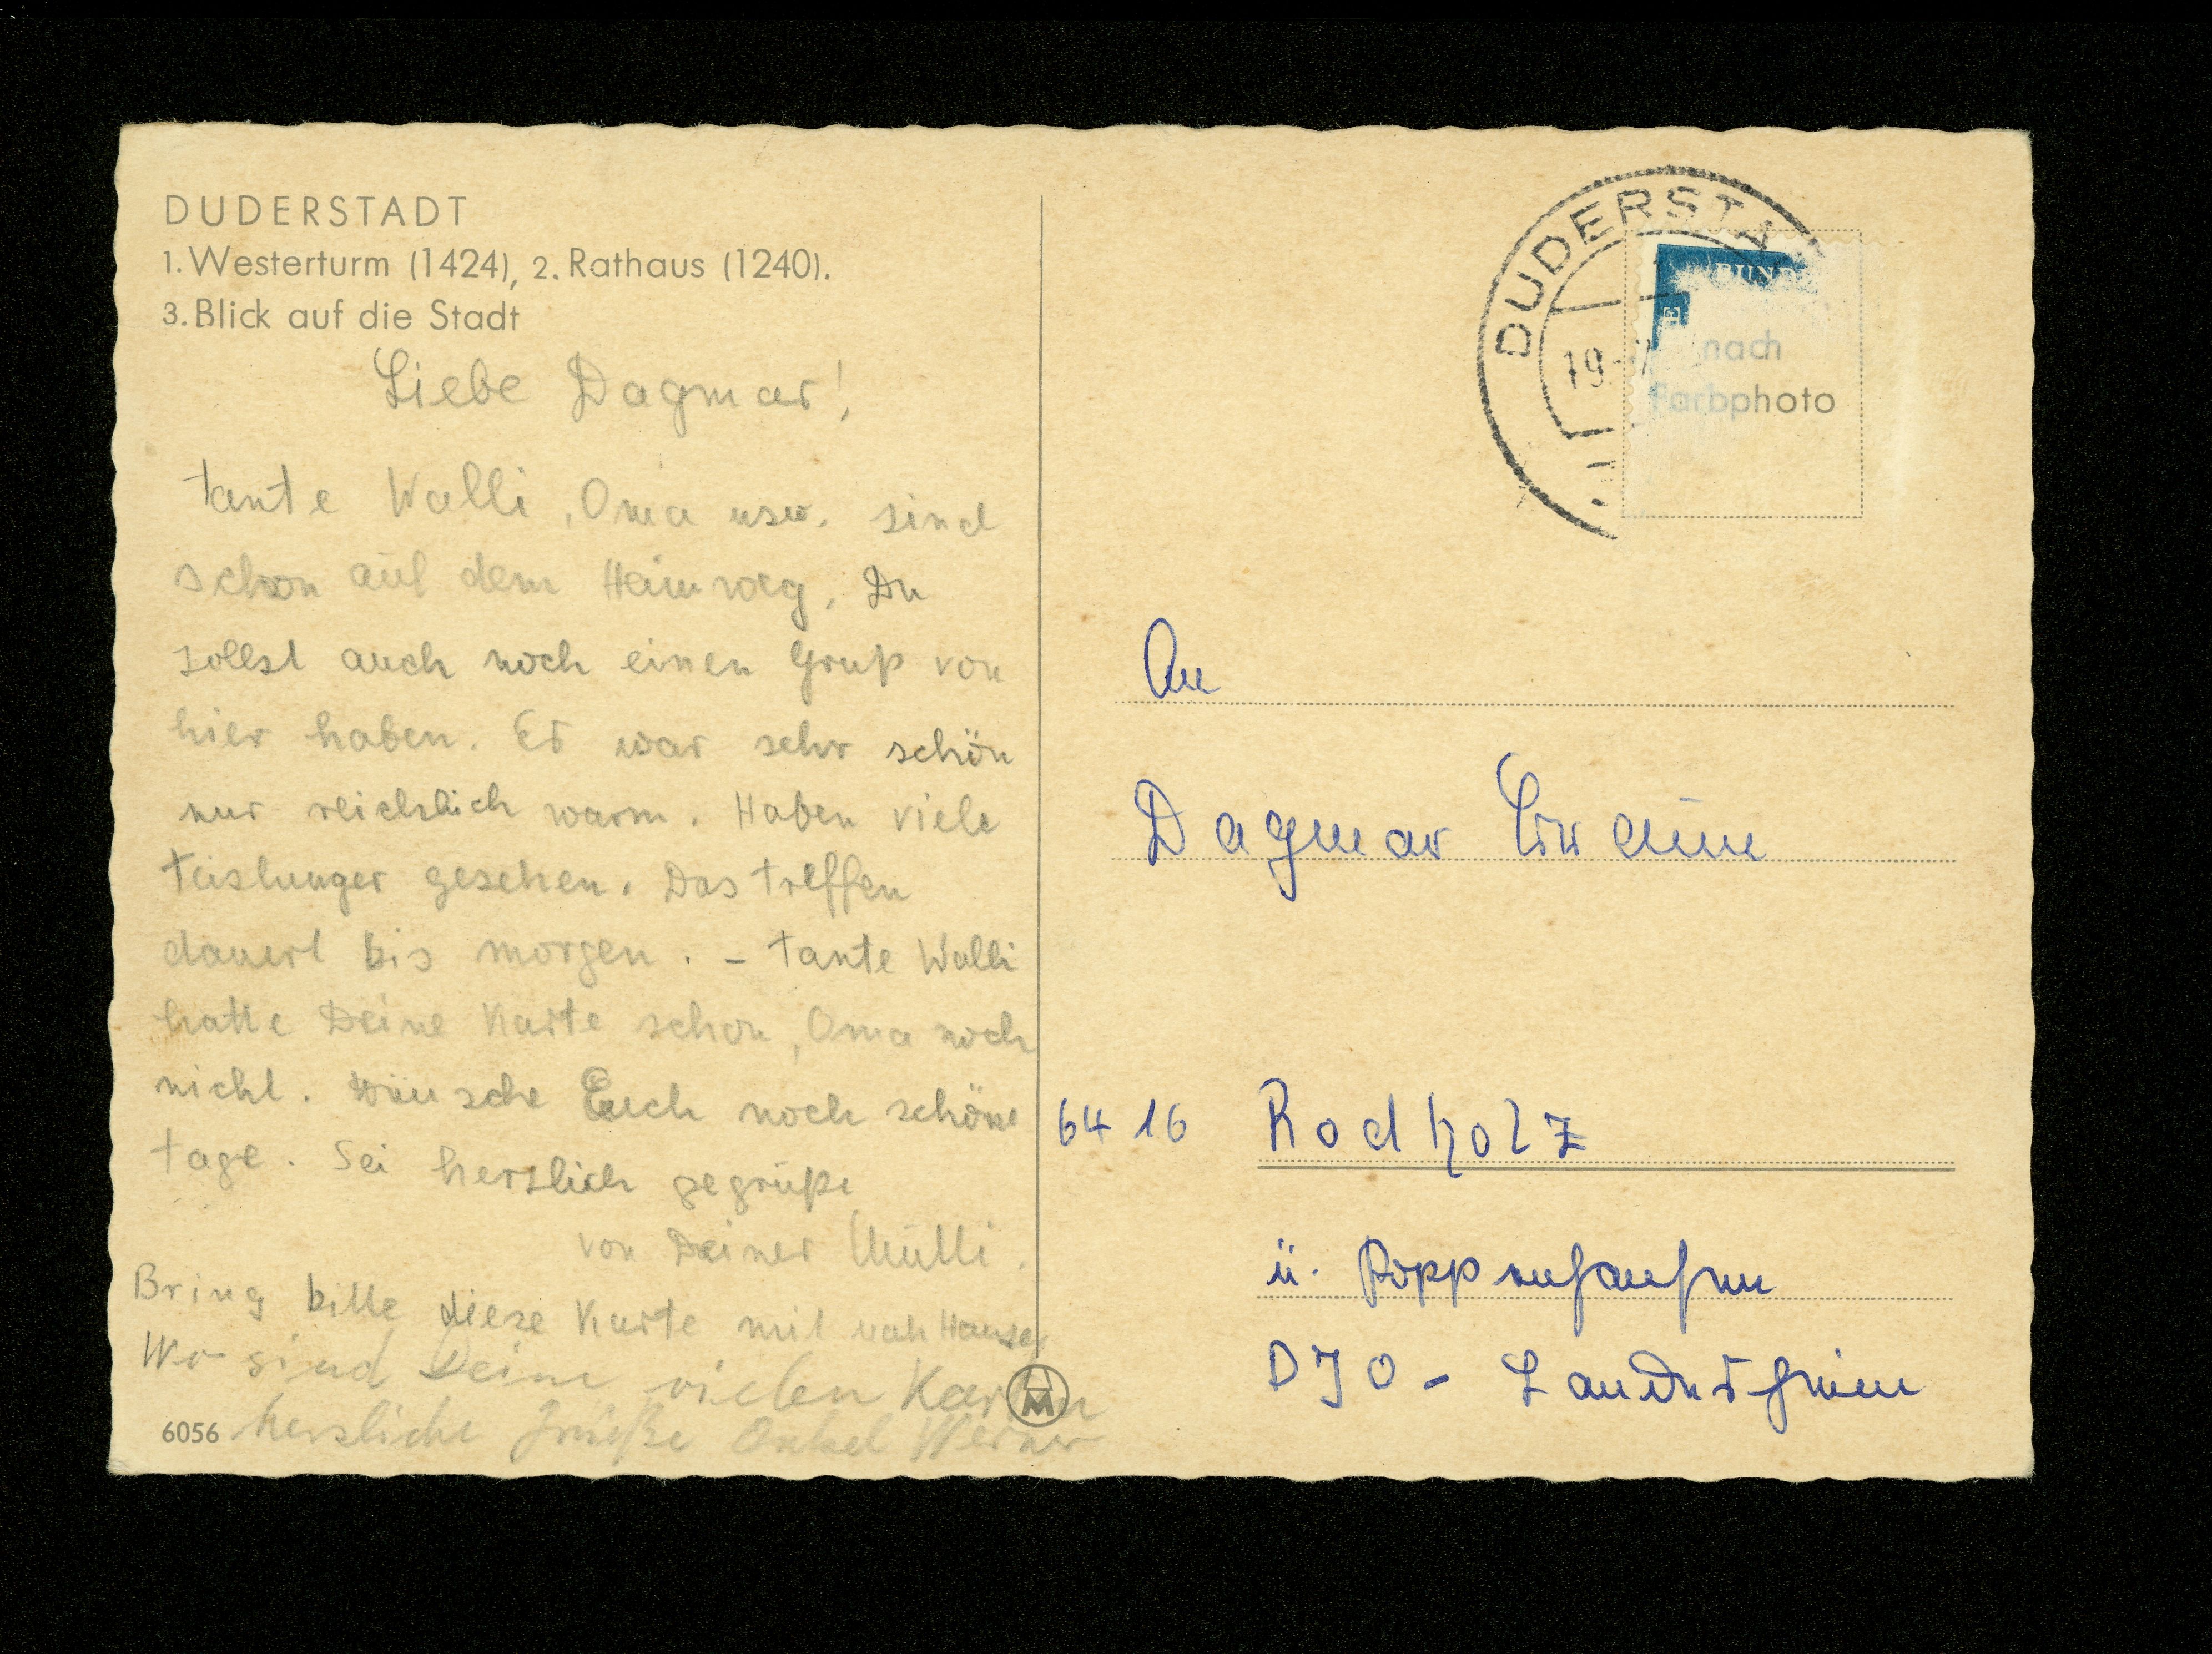 DUDERSTADT
1. Westerturm (1424), 2. Rathaus (1240).
3. Blick auf die Stadt
Liebe Dagmar!
Tante Walli, Oma usw. sind
schon auf dem Heimweg. Du
sollst auch noch einen Gruß von
hier haben. Es war sehr schön
nur reichlich warm. Haben viele
Teislunger gesehen. Das Treffen
dauert bis morgen. - Tante Walli
hatte Deine Karte schon, Oma noch
nicht. Wünsche Euch noch schöne
Tage. Sei herzlich gegrüßt
von Deiner Mutti.
Bring bitte diese Karte mit nah Hause
Wo sind Deine vielen Karten
herzliche Grüße Onkel Werner
6056
DUDERSTA
19.-7
BUNDE
nach
Farbphoto
An
Dagmar
6416 Rodholz
ü. Poppenhausen
DJO - Landesheim